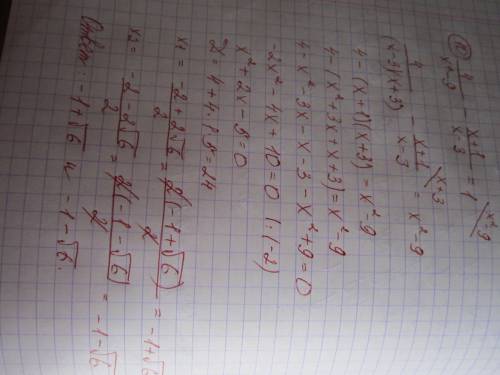 ② 4/(x²-9) - (x+1)/(x-3) = 1 /x²-9
4/((x-3)(x+3)) - (x+1)/(x-3) /x+3 = x²-9
4-(x+1)(x+3) = x²-9
4-(x²+3x+x+3) = x²-9
4-x²-3x-x-3-x²+9=0
-2x²-4x+10=0 |:(-2)
x²+2x-5=0
D=4+4·1·5=24
x₁ = (-2+2√6)/2 = 2(-1+√6)/2 = -1+√6
x₂ = (-2-2√6)/2 = 2(-1-√6)/2 = -1-√6
Ответ: -1+√6 и -1-√6.